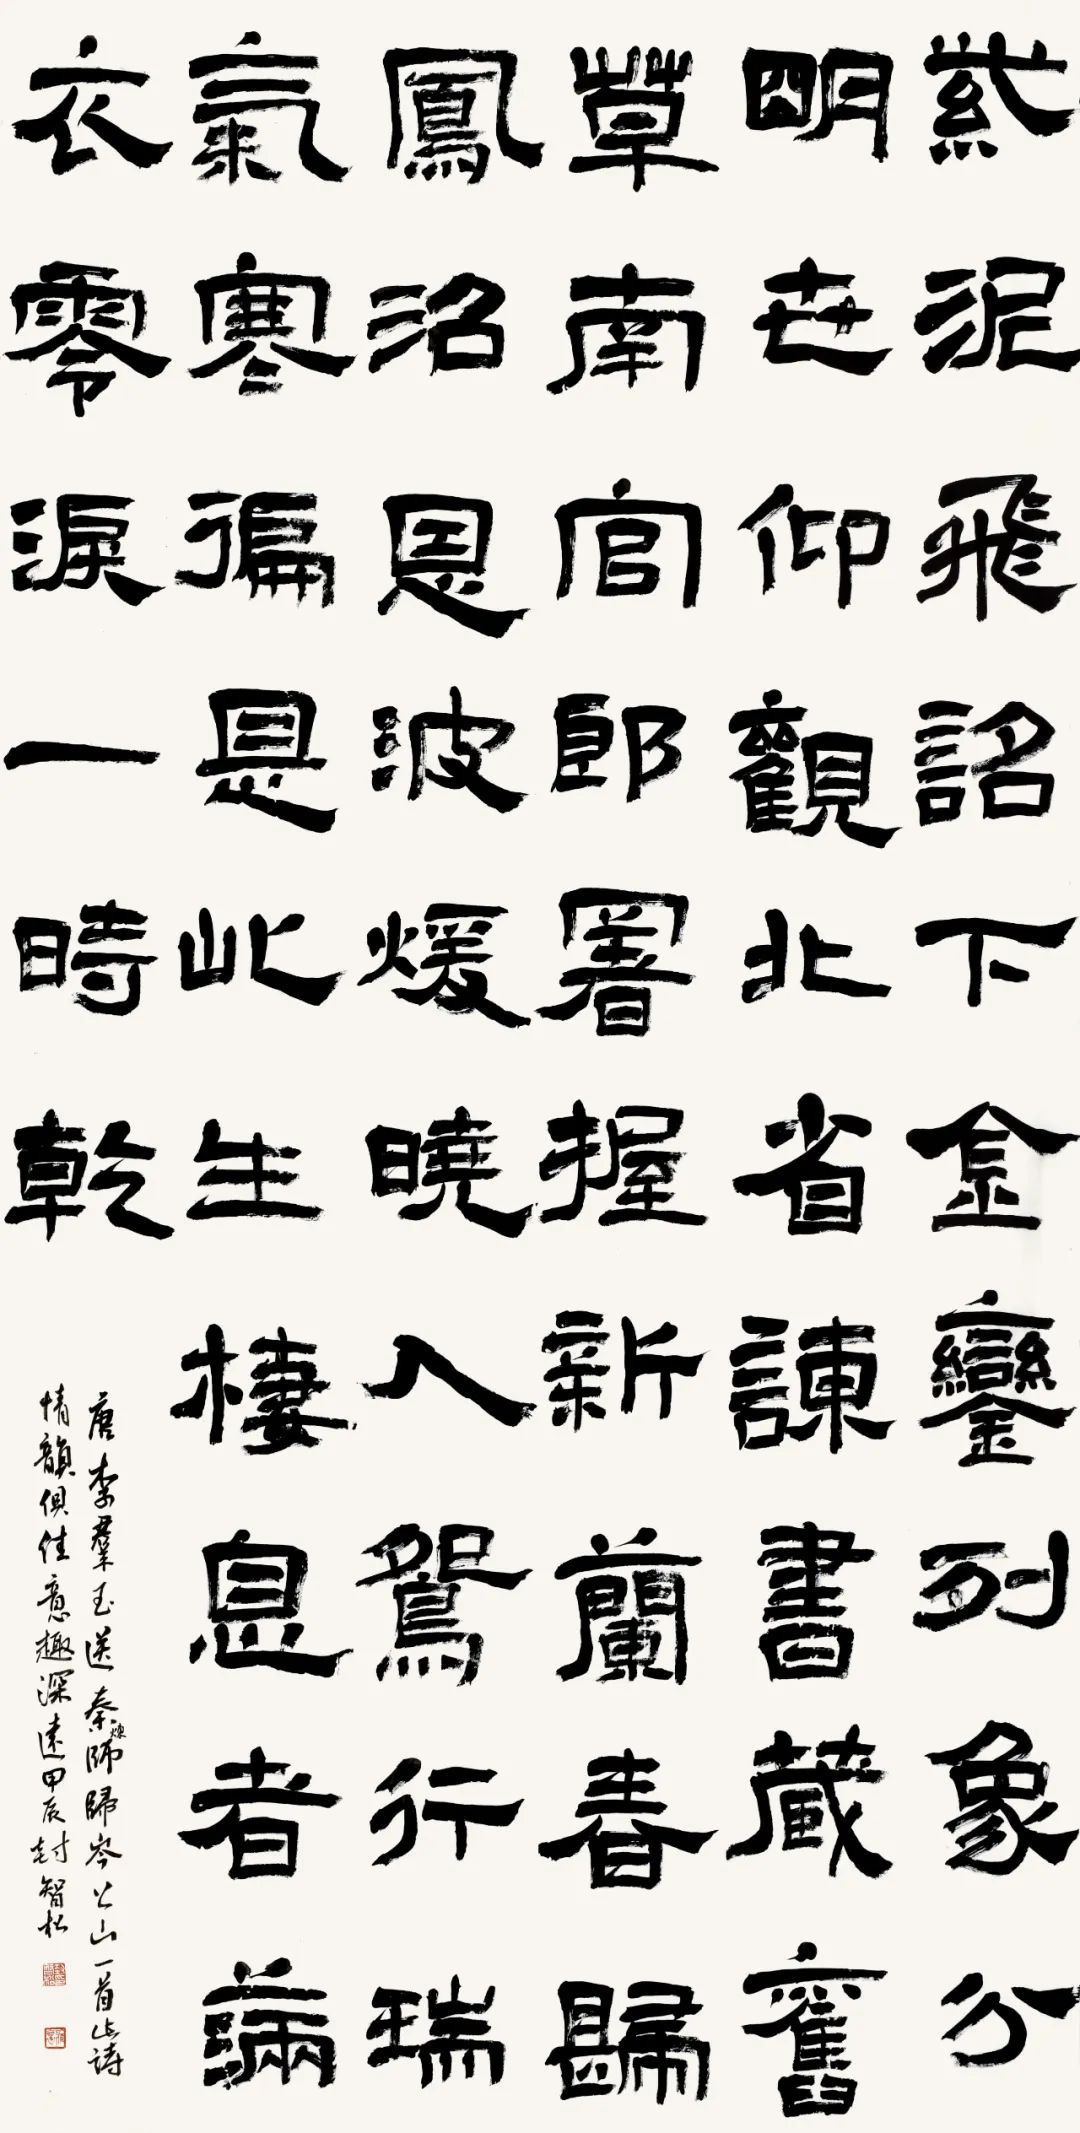 紫泥飛詔下金鑾列象分
明世仰觀北省諫書藏舊
草南宮郎署握新蘭春歸
鳳沼恩波煖曉入鴛行瑞
氣寒徧是此生棲息者滿
衣零淚一時乾
唐李羣玉送秦煉師歸岑公山一首此詩
情韻俱佳意趣深遠甲辰封智松